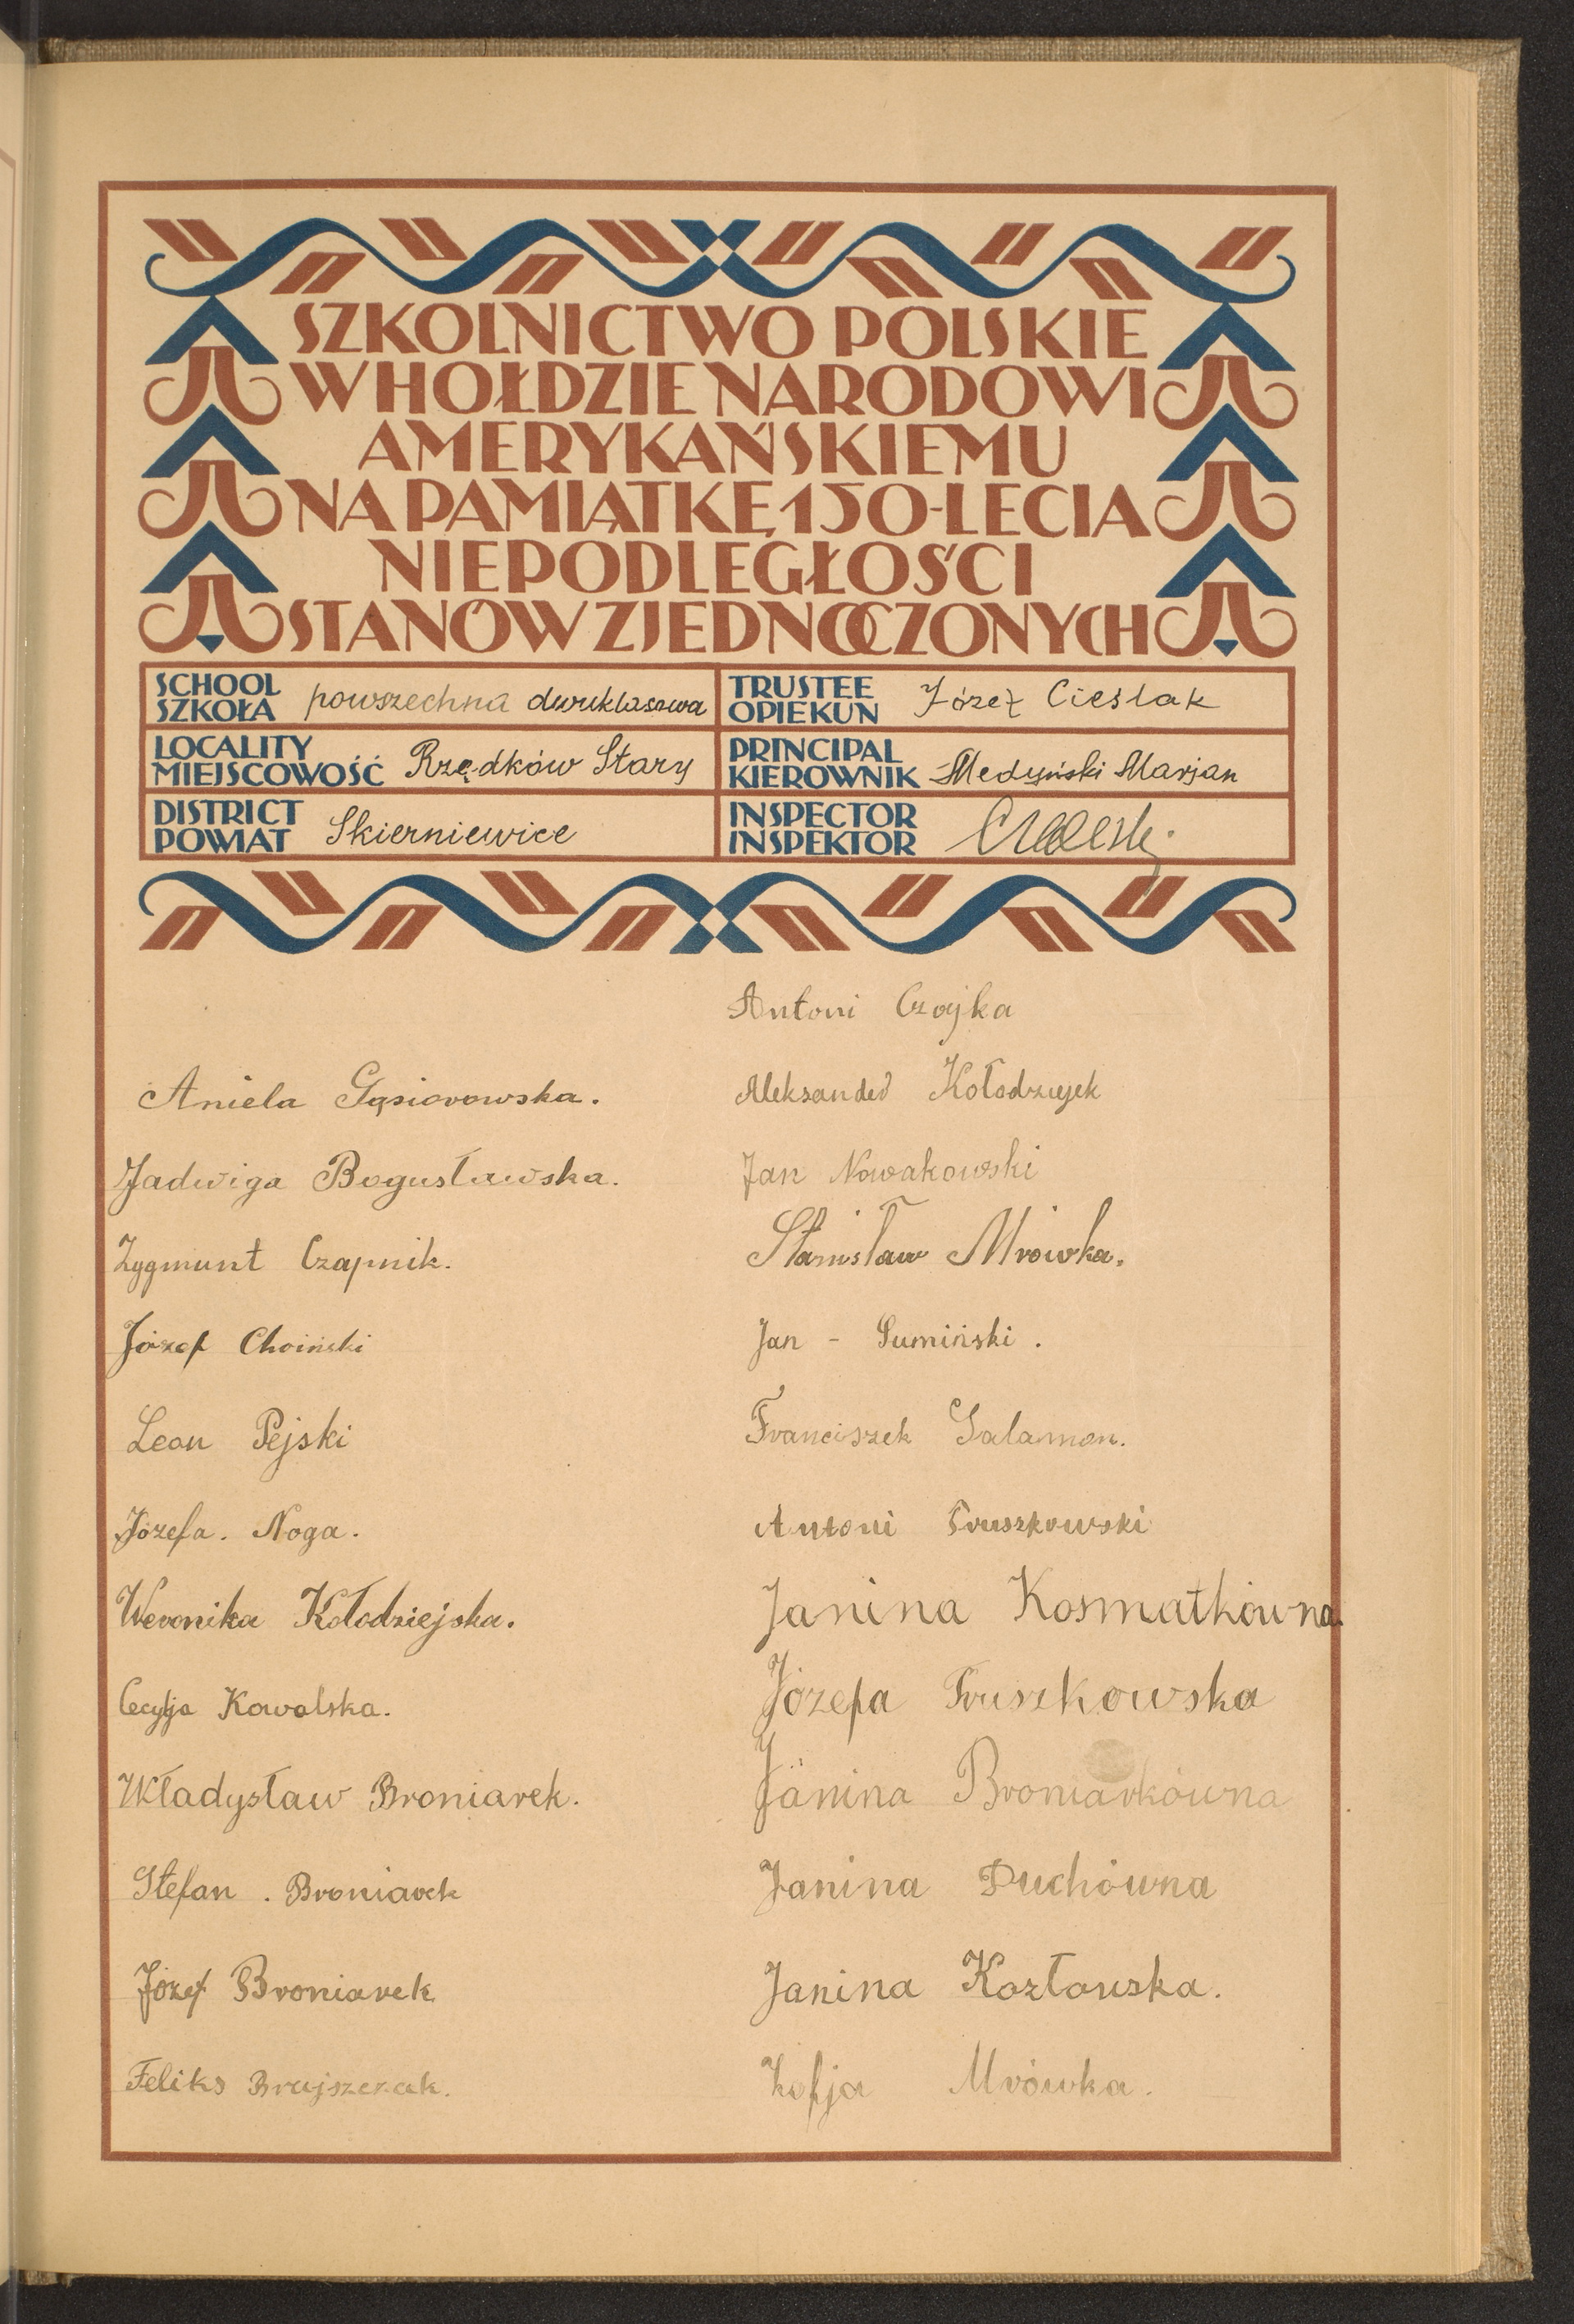 SZKOLNICTWO POLSKIE
W HOŁDZIE NARODOWI
AMERYKAŃSKIEMU
NA PAMIĄTKĘ 150-LECIA
NIEPODLEGŁOŚCI
STANÓW ZJEDNOCZONYCH
SCHOOL
SZKOŁA powszechna dwuklasowa
TRUSTEE
OPIEKUN Józef Cieślak
LOCALITY
MIEJSCOWOŚĆ Rzędków Stary
PRINCIPAL
KIEROWNIK Medyński Marjan
DISTRICT
POWIAT Skierniewice
INSPECTOR
INSPEKTOR
Aniela Gąsiorowska.
Jadwiga Bogusławska.
Zygmunt Czapnik.
Józef Choiński
Leon Pejski
Józefa. Noga.
Weronika Kołodziejska.
Cecylja Kowalska.
Władysław Broniarek.
Stefan . Broniarek
Józef Broniarek
Feliks Brujszczak.
Antoni Czajka
Aleksander Kołodziejek
Jan Nowakowski
Stanisław Mrówka.
Jan - Sumiński .
Franciszek Salamon.
Antoni Pruszkowski
Janina Kosmatkówna.
Józefa Pruszkowska
Janina Broniarkówna
Janina Duchówna
Janina Kozłowska.
Zofja Mrówka.